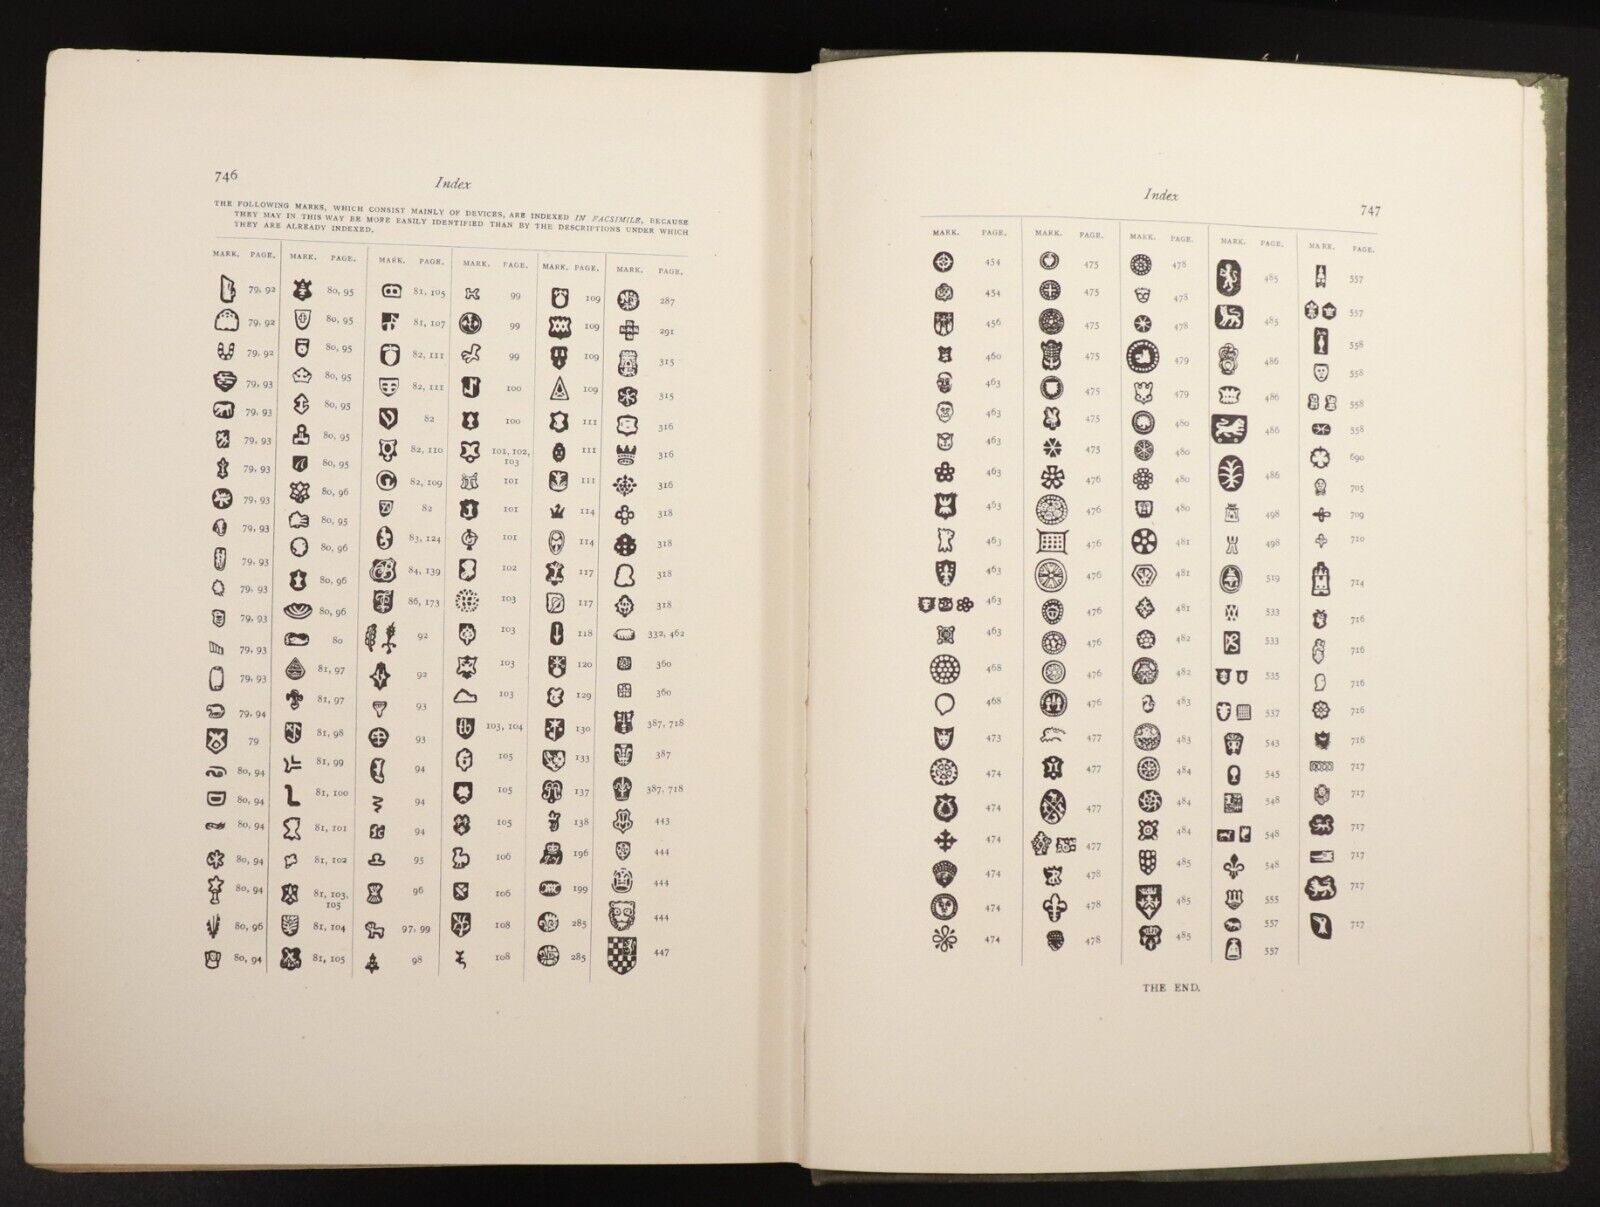 746
Index
THE FOLLOWING MARKS, WHICH CONSIST MAINLY OF DEVICES, ARE INDEXED IN FACSIMILE, BECAUSE
THEY MAY IN THIS WAY BE MORE EASILY IDENTIFIED THAN BY THE DESCRIPTIONS UNDER WHICH
THEY ARE ALREADY INDEXED.
MARK. PAGE. MARK. PAGE. MARK. PAGE. MARK. PAGE. MARK. PAGE. MARK. PAGE.
79, 92 80, 95 81, 105 99 109 287
79, 92 80, 95 81, 107 99 109 291
79, 92 80, 95 82, 111 99 109 315
79, 93 80, 95 82, 111 100 109 315
79, 93 80, 95 82 100 111 316
79, 93 80, 95 82, 110 101, 102, 103 111 316
79, 93 80, 95 82, 109 101 111 316
79, 93 80, 96 82 101 114 318
79, 93 80, 95 83, 124 101 114 318
79, 93 80, 96 84, 139 102 117 318
79, 93 80, 96 86, 173 103 117 318
79, 93 80, 96 92 103 118 332, 462
79, 93 80 92 103 120 360
79, 93 81, 97 93 103 129 360
79, 94 81, 97 93 103, 104 130 387, 718
79 81, 98 94 105 133 387
80, 94 81, 99 94 105 137 387, 718
80, 94 81, 100 94 105 138 443
80, 94 81, 101 95 106 196 444
80, 94 81, 102 96 106 199 444
80, 94 81, 103, 105 97, 99 108 285 444
80, 96 81, 104 98 108 285 447
80, 94 81, 105
Index
747
MARK. PAGE. MARK. PAGE. MARK. PAGE. MARK. PAGE. MARK. PAGE.
454 475 478 485 557
454 475 478 485 557
456 475 478 486 558
460 475 479 486 558
463 475 479 486 558
463 475 480 486 558
463 475 480 498 690
463 476 480 498 705
463 476 480 519 709
463 476 481 533 710
463 476 481 533 714
463 476 481 535 716
463 476 482 537 716
468 476 482 543 716
468 476 483 545 716
473 477 483 548 716
474 477 484 548 717
474 477 484 548 717
474 477 484 555 717
474 478 485 557 717
474 478 485 557 717
474 478 485 717
THE END.